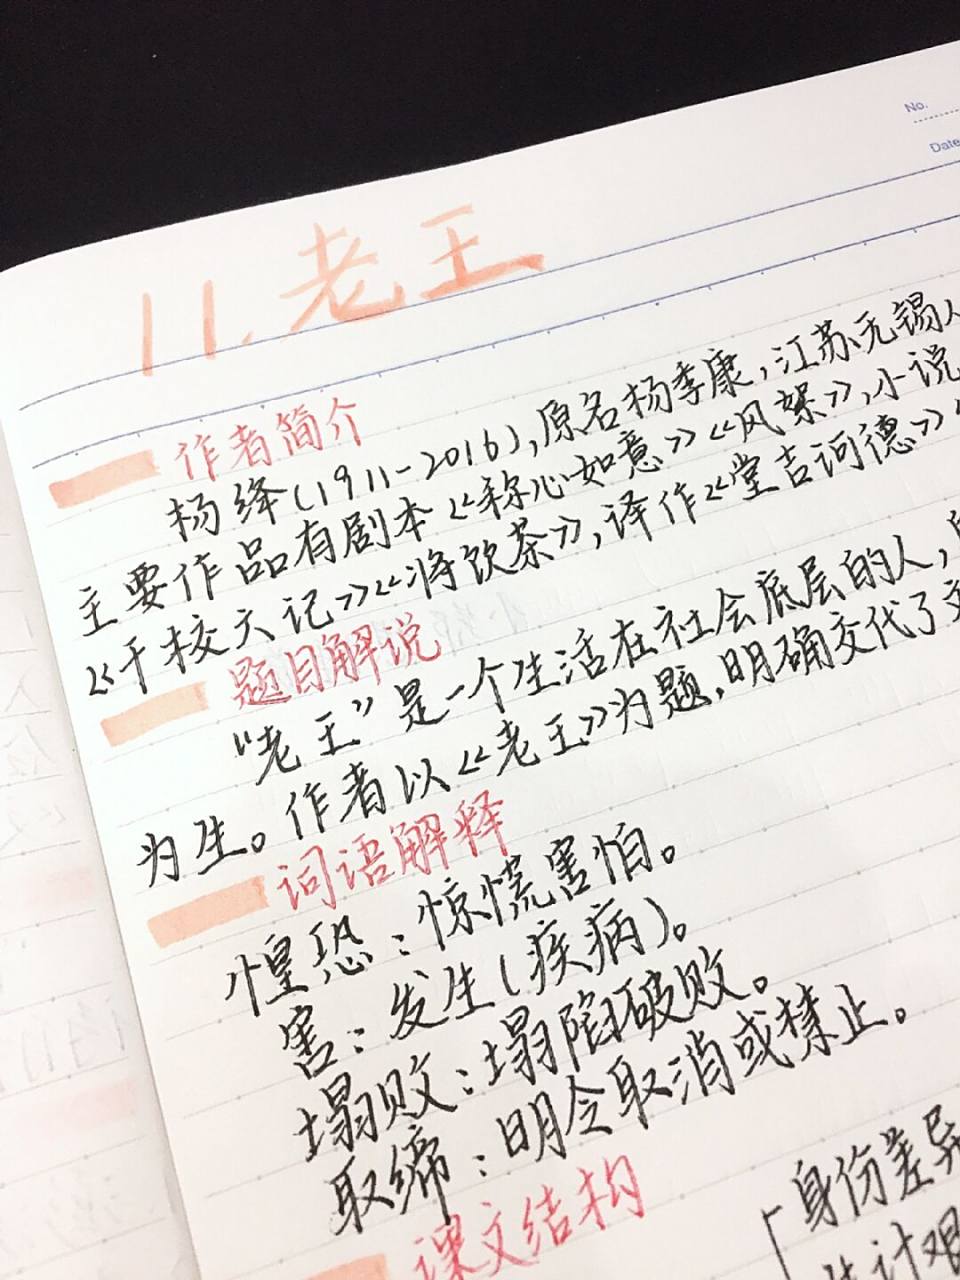 No.
Date
11.老王
作者简介
杨绛(1911-2016),原名杨季康,江苏无锡人
主要作品有剧本《称心如意》《风絮》,小说
《干校六记》《将饮茶》,译作《堂吉诃德》
题目解说
“老王”是一个生活在社会底层的人,
为生。作者以《老王》为题,明确交代了文
词语解释
惶恐:惊慌害怕。
害:发生(疾病)。
塌败:塌陷破败。
取缔:明令取消或禁止。
课文结构
身份差异
生计艰